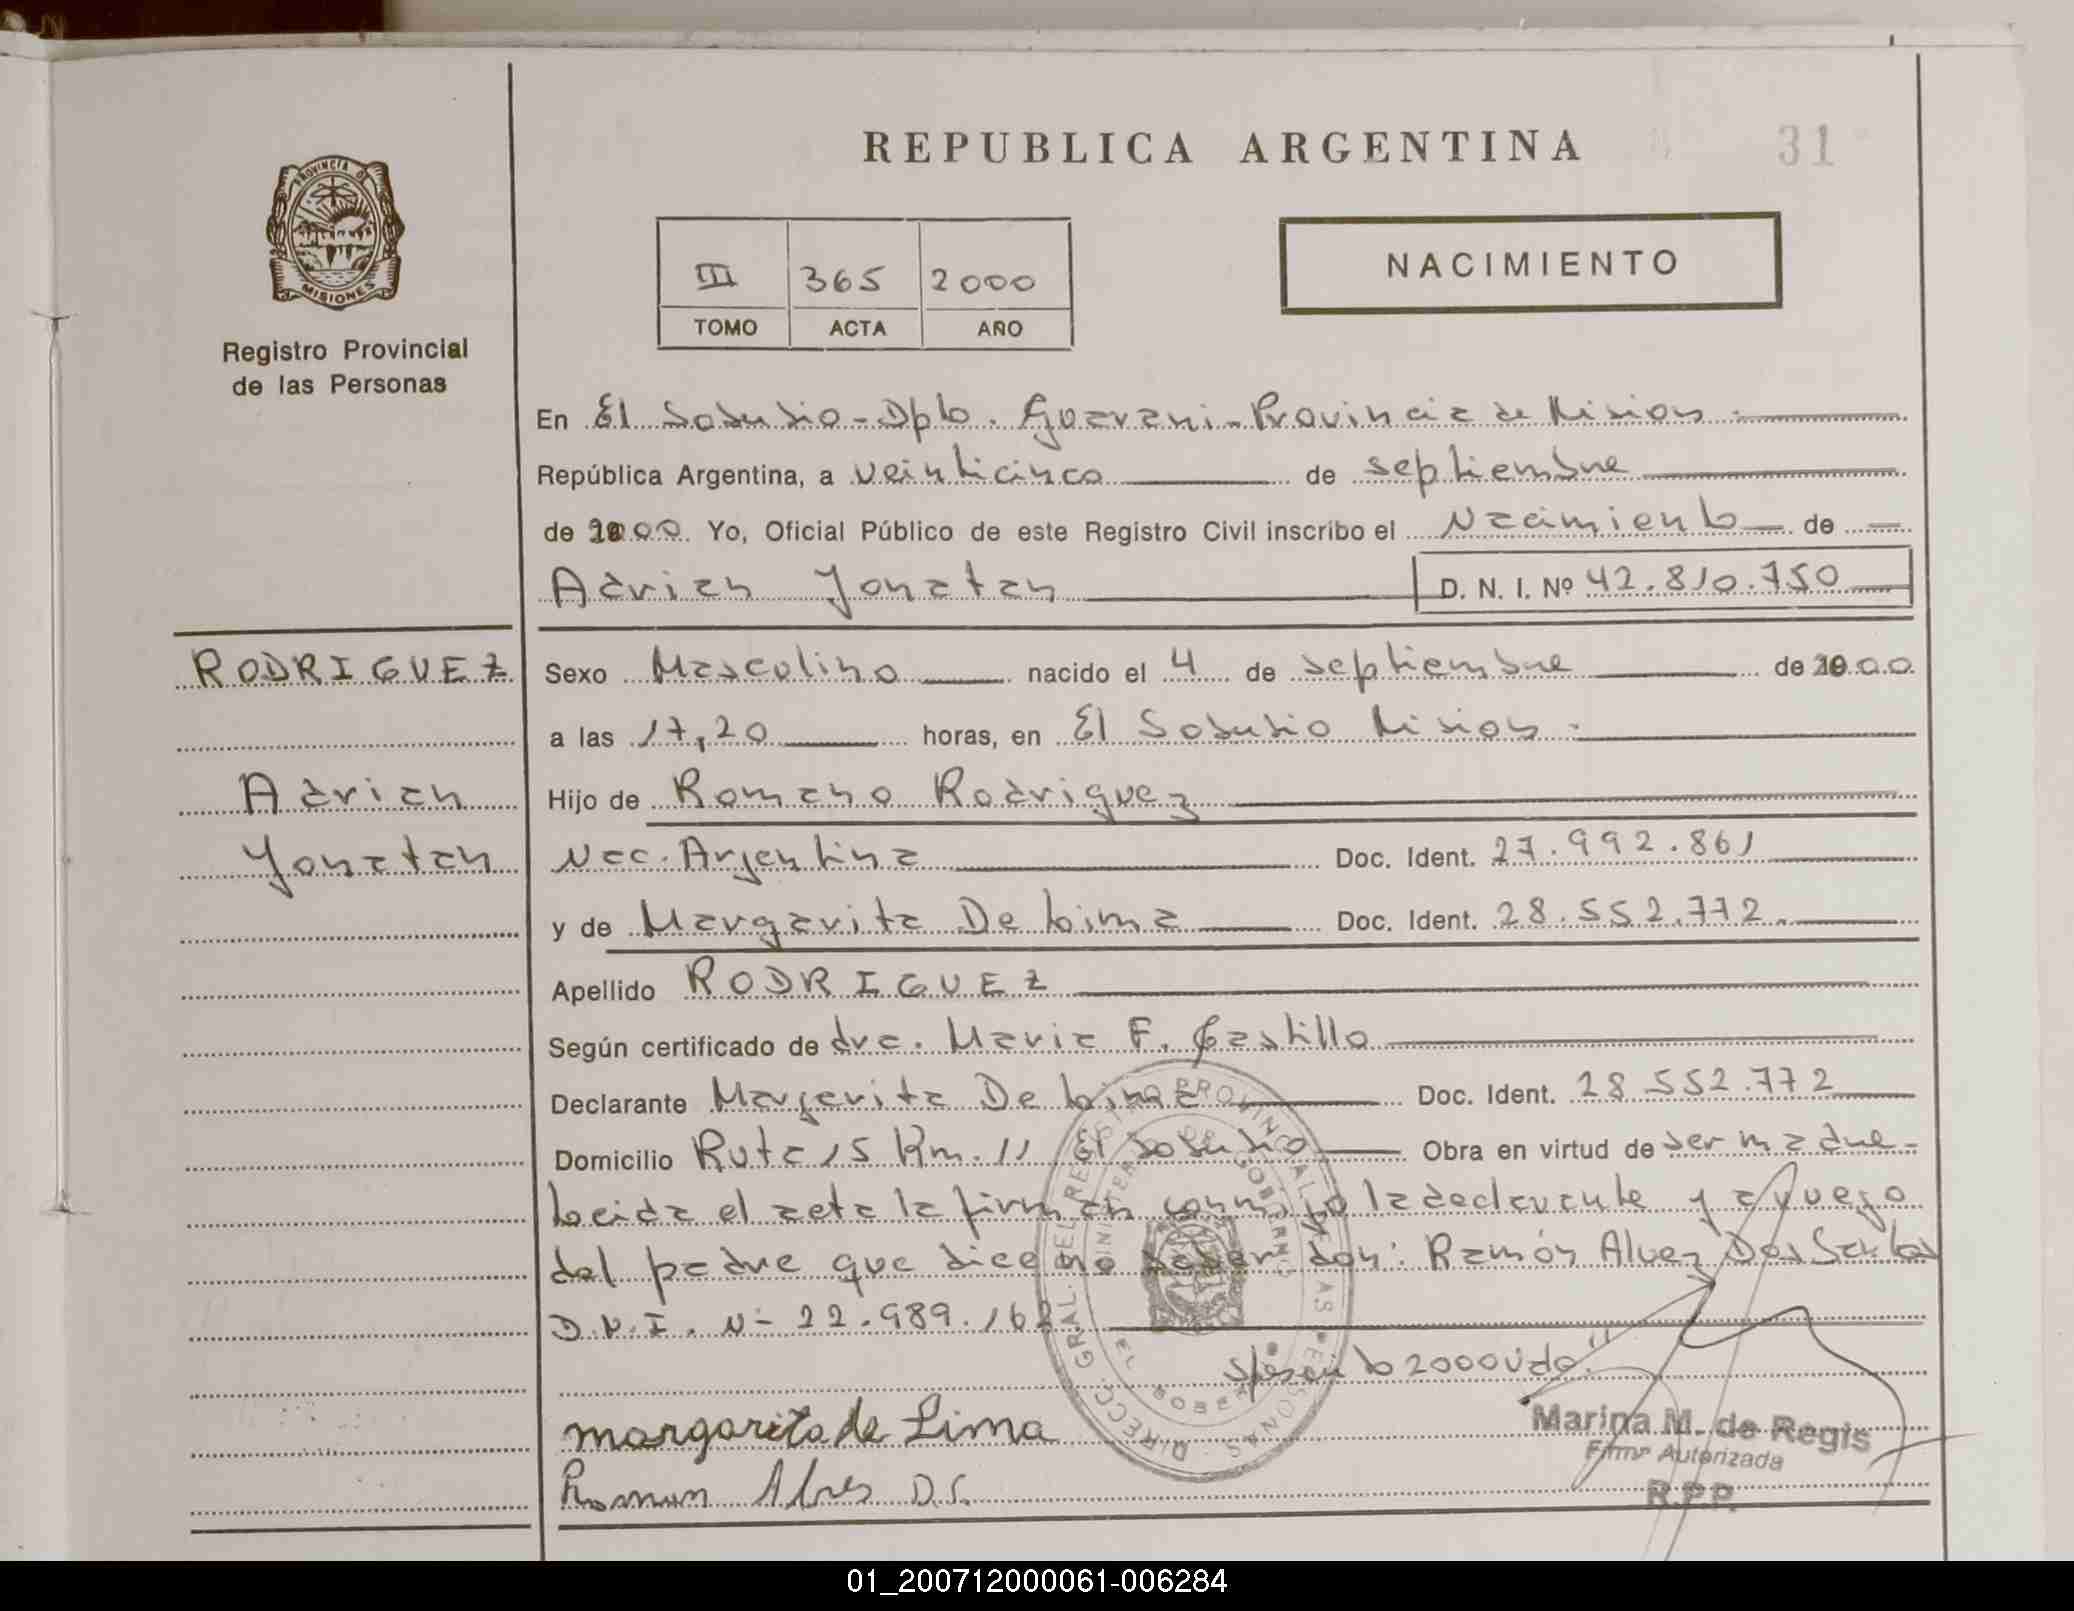 REPUBLICA ARGENTINA
31
PROVINCIA DE
MISIONES
Registro Provincial
de las Personas
III 365 2000
TOMO ACTA AÑO
NACIMIENTO
En El Soberbio - Dpto. Guarani - Provincia de Misiones
República Argentina, a veinticinco de septiembre
de 2000 Yo, Oficial Público de este Registro Civil inscribo el Nacimiento de
Adrian Yonatan D. N. I. Nº 42.810.750
RODRIGUEZ
Adrian
Yonatan
Sexo Masculino nacido el 4 de septiembre de 2000
a las 17,20 horas, en El Soberbio Misiones
Hijo de Romano Rodriguez
Nac. Argentina Doc. Ident. 27.992.861
y de Margarita De Lima Doc. Ident. 28.552.772.
Apellido RODRIGUEZ
Según certificado de dra. Maria F. Castillo
Declarante Margarita De Lima Doc. Ident. 28 552.772
Domicilio Ruta 15 Km. 11 El Soberbio Obra en virtud de ser madre -
Leida el acta la firman conmigo la declarante y a ruego
del padre que dice no saber don: Ramón Alvez Dos Santos
D.N.I. N- 22.989.162
S/rasp 2000 Vale
margarita de Lima
Roman Alves D.S.
DIRECC. GRAL. DEL REGISTRO PROVINCIAL DE LAS PERSONAS
MINISTERIO DE GOBIERNO
Marina M. de Regis
Firma Autorizada
R.P.P.
01_200712000061-006284